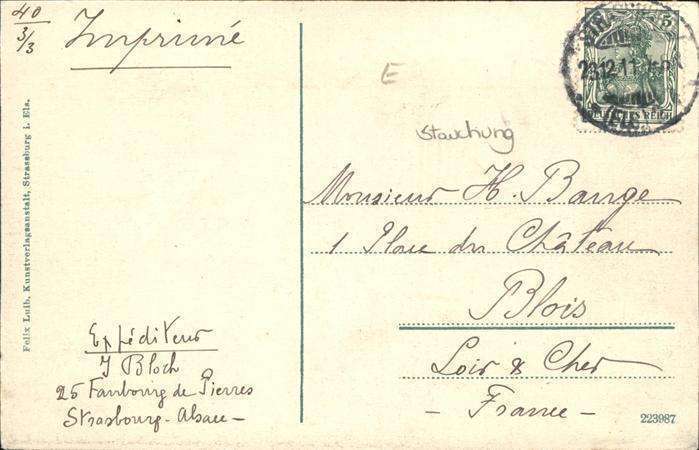 40
3/3
Imprimé
E
Stauchung
5
STRA
23.12.11
(ELS.)
DEUTSCHES REICH
Monsieur H. Bange
1 Place du Château
Blois
Loir & Cher
- France -
Expéditeur
J Bloch
25 Faubourg de Pierres
Strasbourg - Alsace -
Felix Luib, Kunstverlagsanstalt, Strassburg i. Els.
223987